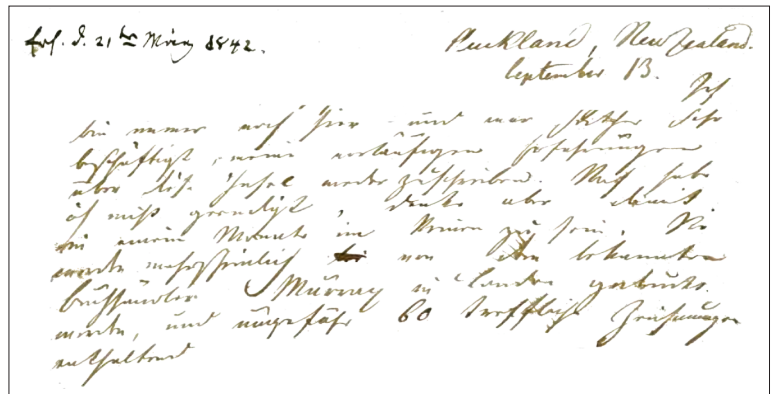 Erh. d. 21ten März 1842.
Auckland, New Zealand.
September 13.
Ich
bin immer noch hier und war seither sehr
beschäftigt, meine vorläufigen Erfahrungen
über diese Insel niederzuschreiben. Noch habe
ich nicht geendigt, denke aber damit
in einem Monate im Reinen zu sein. Sie
werden wahrscheinlich von dem bekannten
Buchhändler Murray in London gedruckt
werden, und ungefähr 60 treffliche Zeichnungen
enthaltend